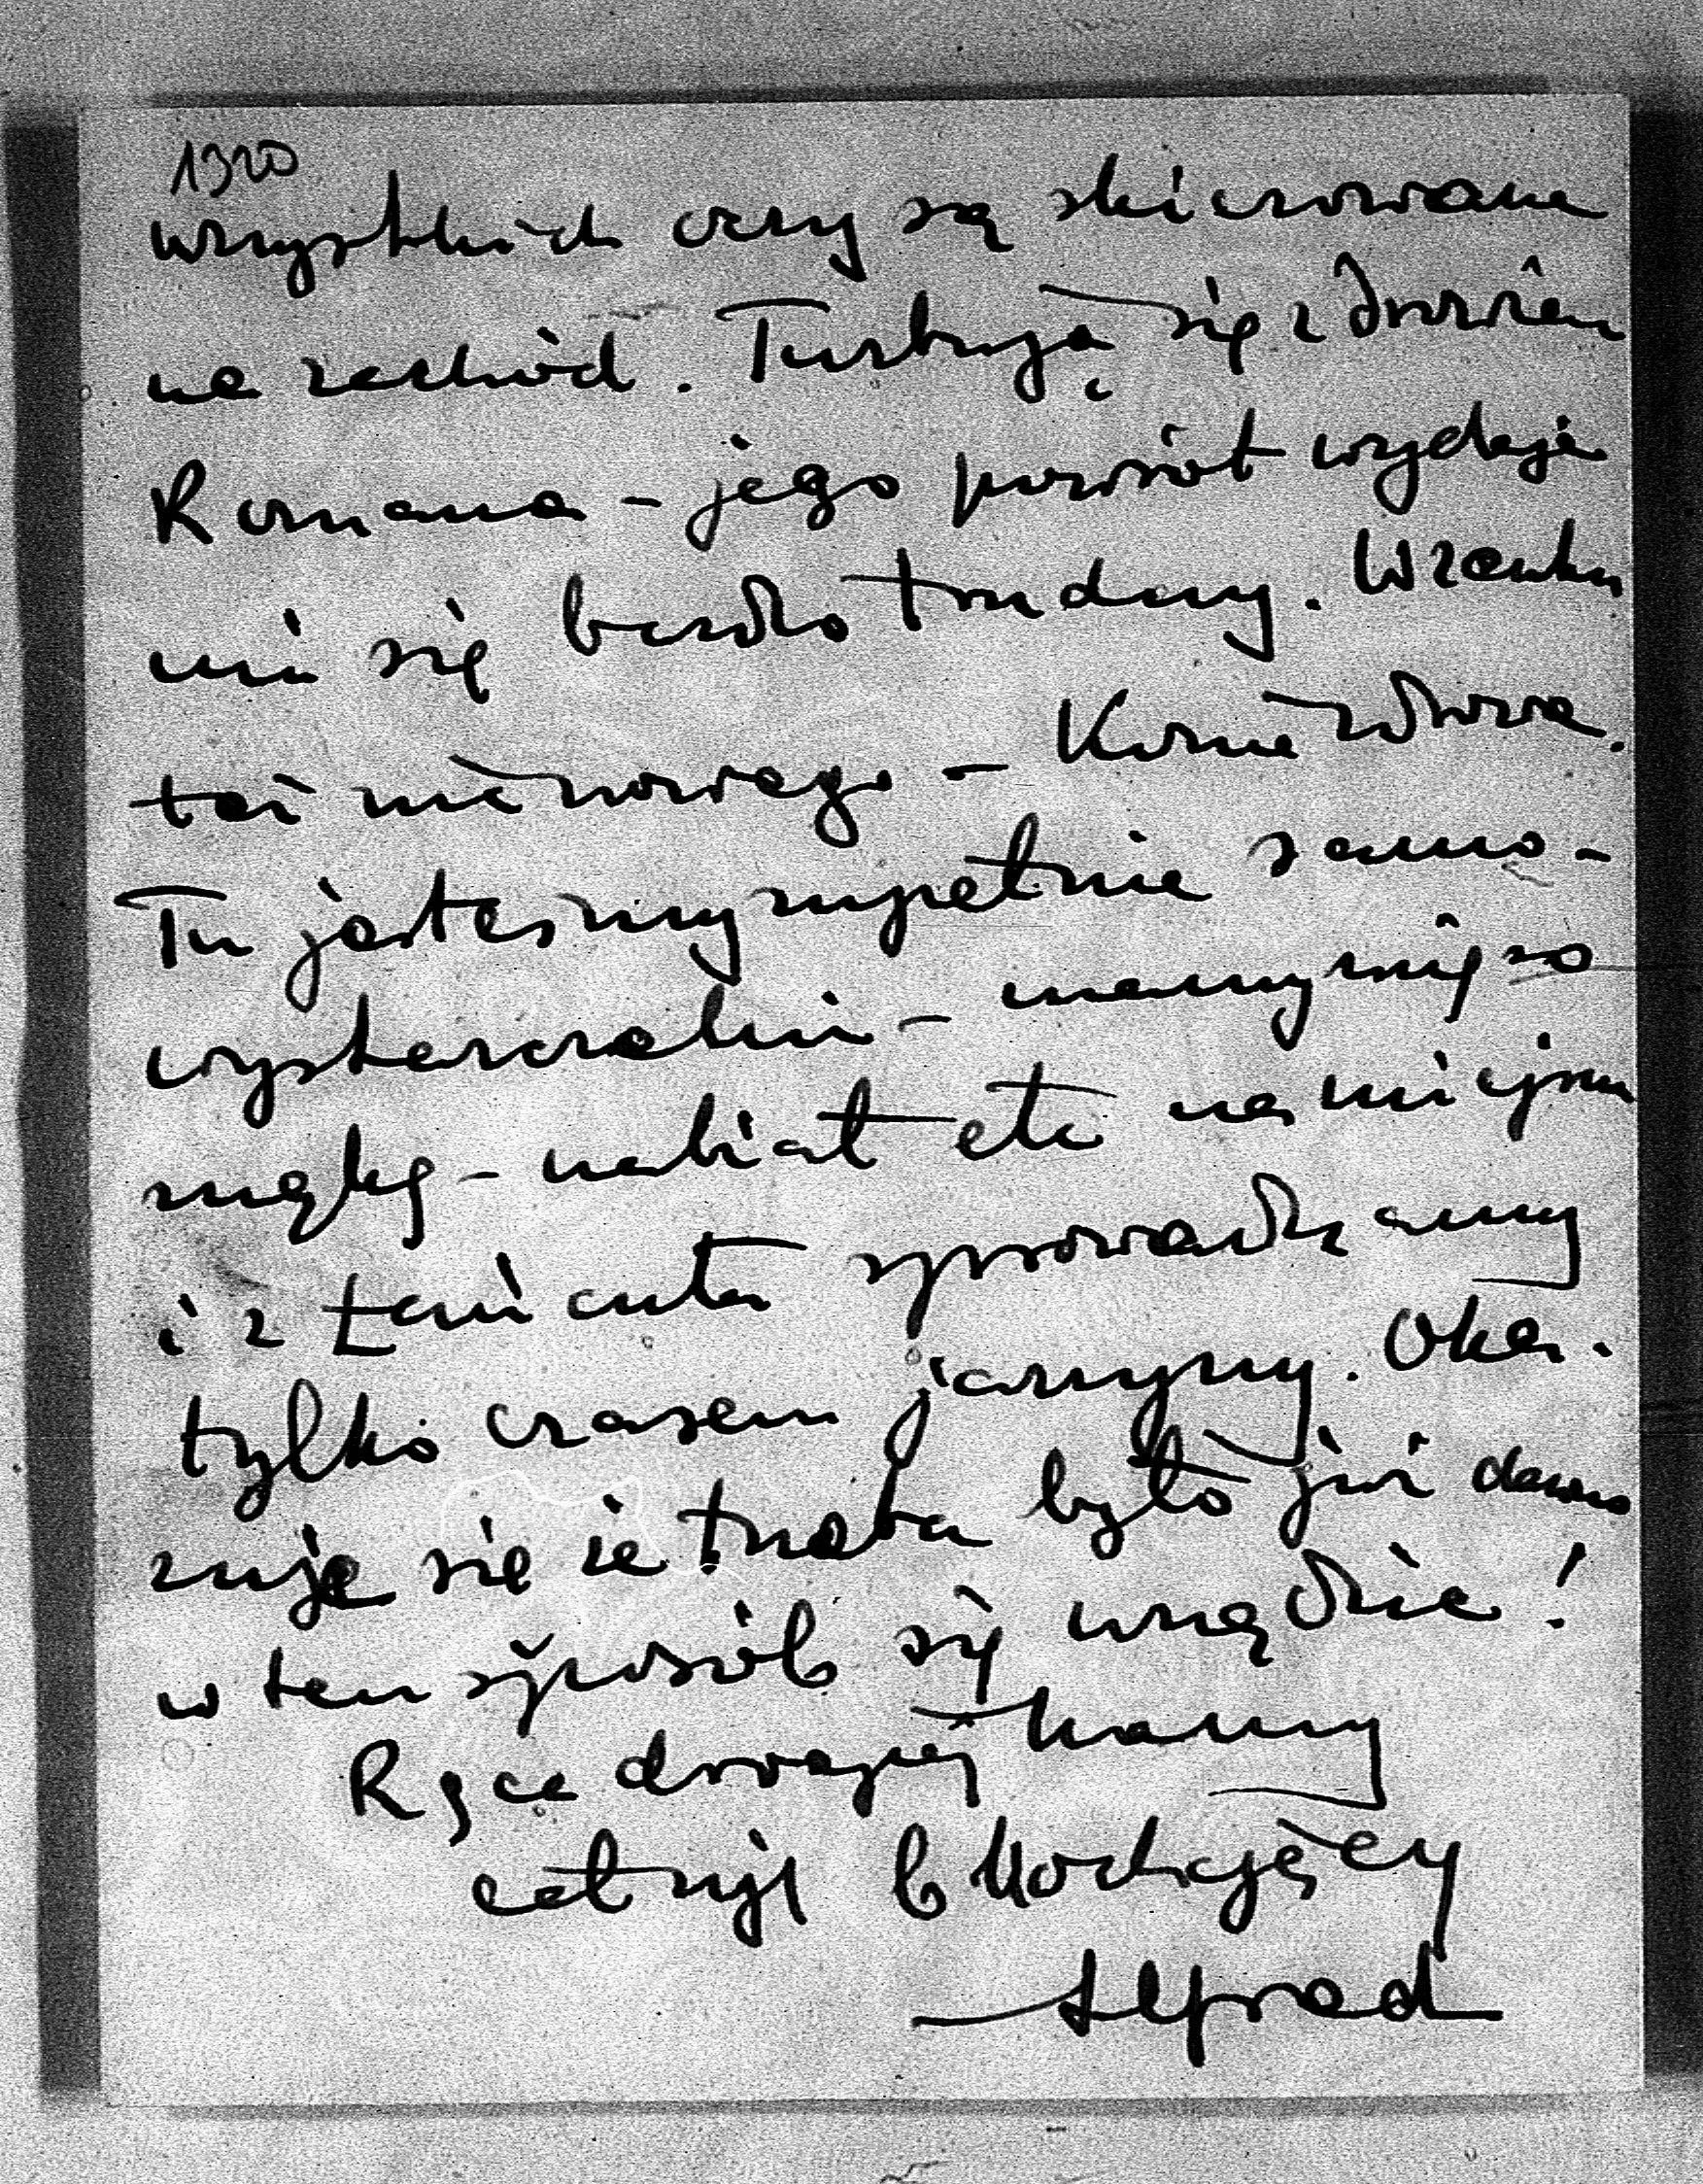 1320
wszystkich oczy są skierowane
na zachód. Turbuję się zdrowiem
Romana – jego powrót wydaje
mi się bardzo trudny.
też nic nowego – Konie zdrowe.
Tu jesteśmy zupełnie samo-
wystarczalni – mamy mięso
mąkę – nabiał etc na miejscu
i z Łańcuta sprowadzamy
tylko czasem jarzyny. Oka-
zuje się że trzeba było już dawno
w ten sposób się urządzić!
Ręce drogiej Mamy
całuję b kochający
Alfred